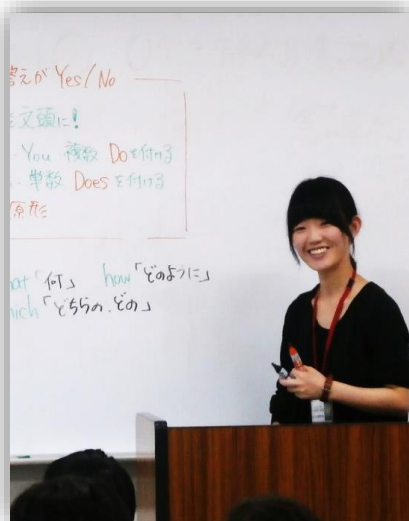 答えが Yes/No
文頭に!
You 複数 Doを付ける
単数 Doesを付ける
原形
「何」 how「どのように」
「どちらの、どの」